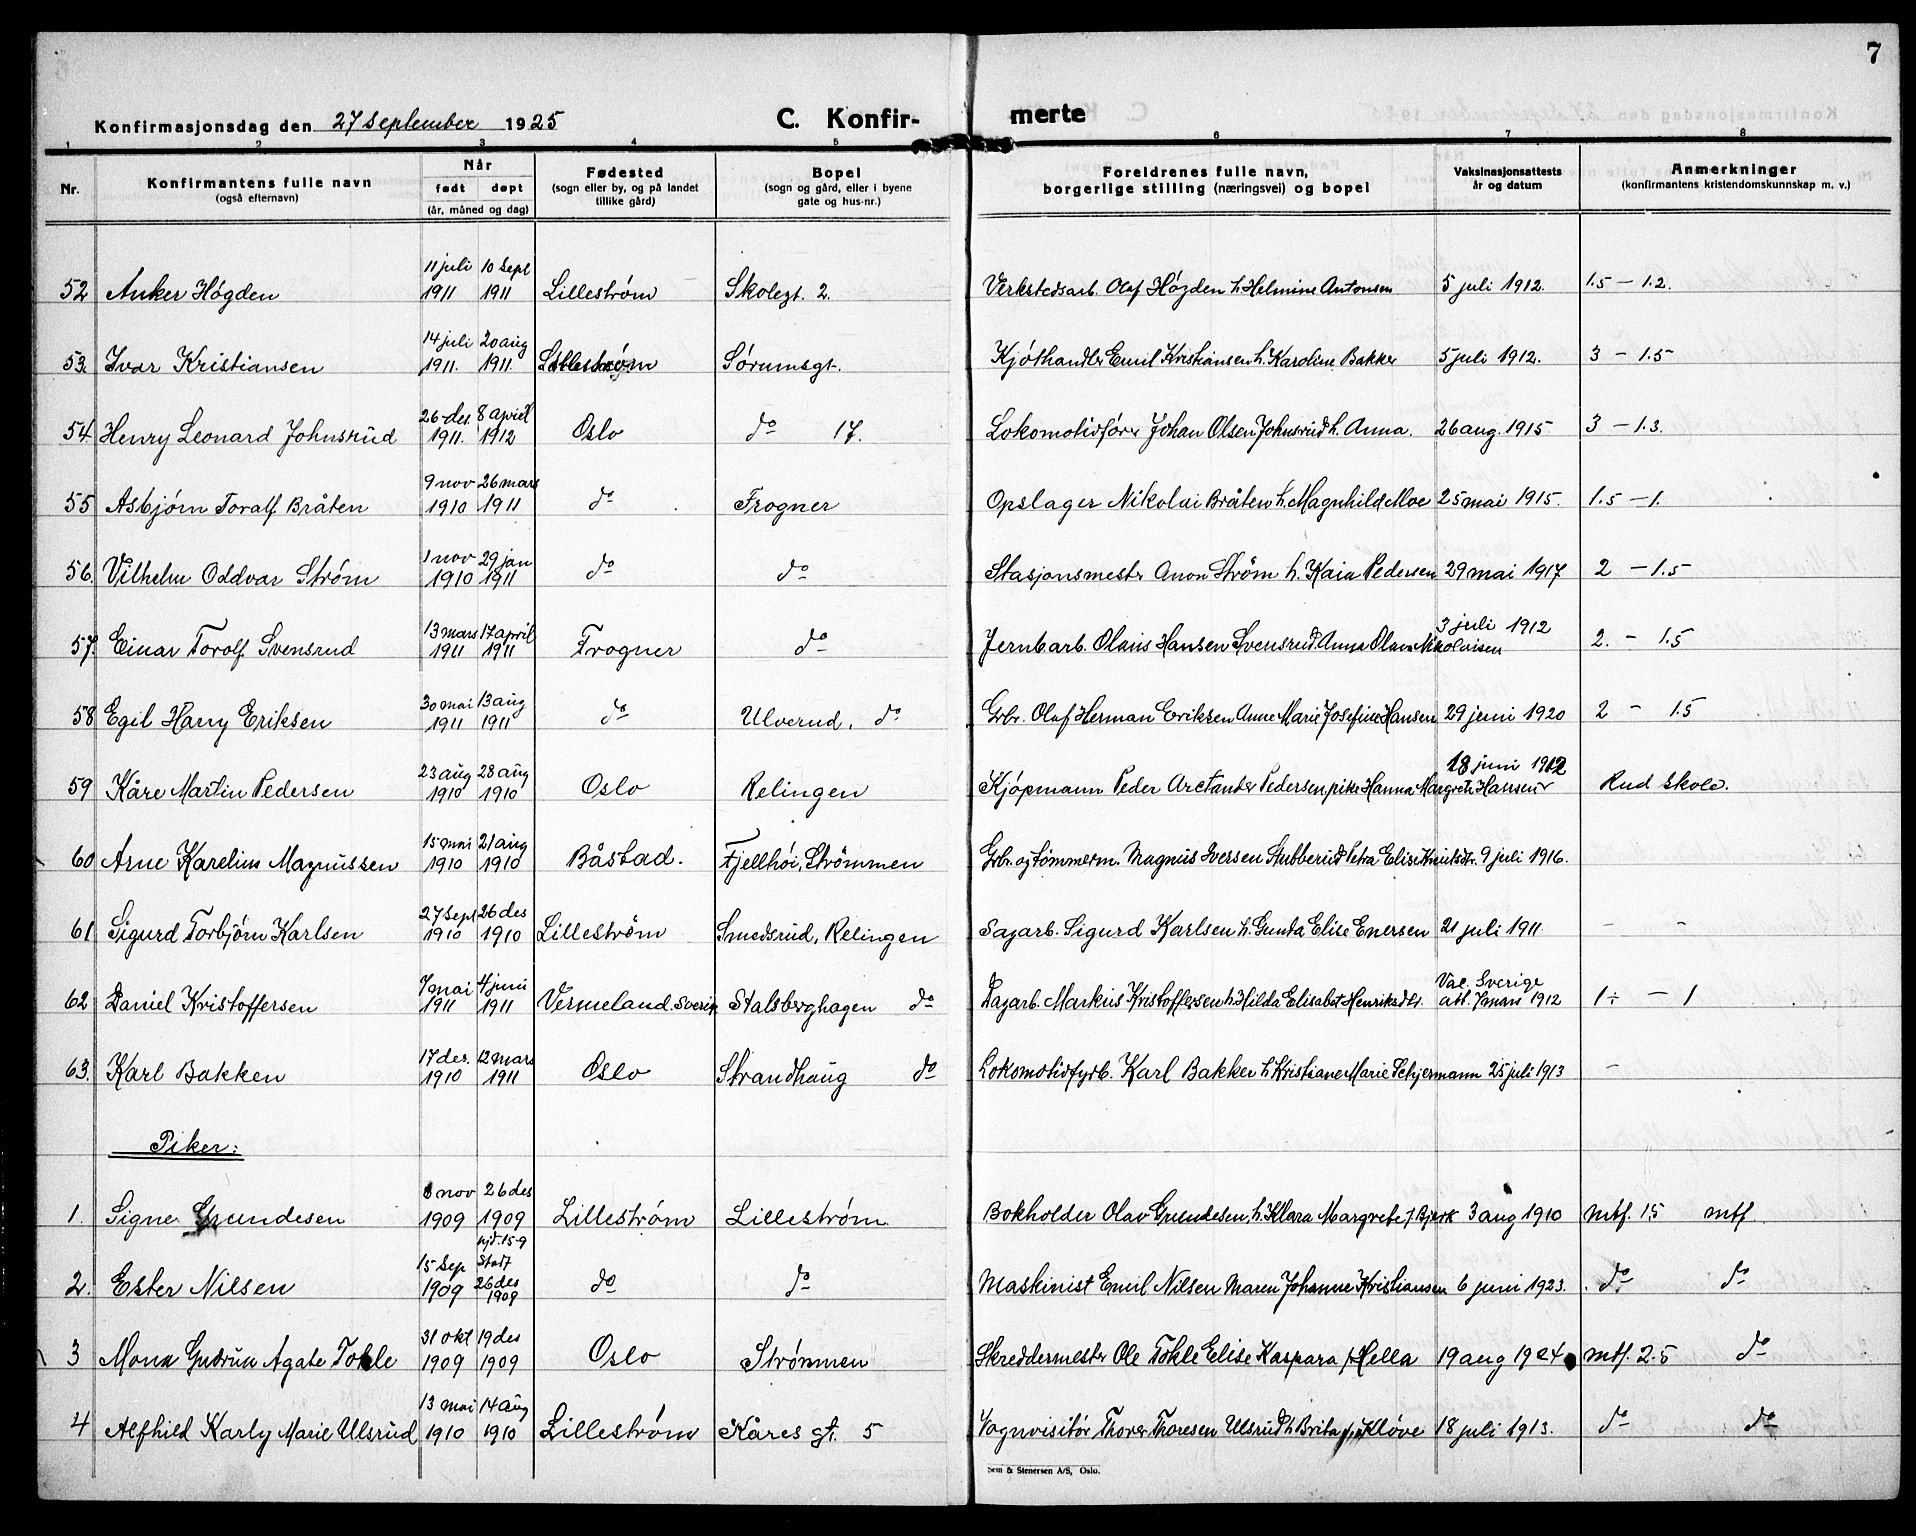 7
Konfirmasjonsdag den 27 September 1925
C. Konfir- merte
1 2 3 4 5 6 7 8
Nr.
Konfirmantens fulle navn
(også efternavn)
Når
født døpt
(år, måned og dag)
Fødested
(sogn eller by, og på landet
tillike gård)
Bopel
(sogn og gård, eller i byene
gate og hus-nr.)
Foreldrenes fulle navn,
borgerlige stilling (næringsvei) og bopel
Vaksinasjonsattests
år og datum
Anmerkninger
(konfirmantens kristendomskunnskap m. v.)
11 juli 10 Sept
52 Anker Høgden 1911 1911 Lillestrøm Skolegt. 2. Verkstedsarb. Olaf Høgden h. Helmine Antonsen 5 juli 1912. 1.5 - 1.2.
14 juli 20 aug
53. Ivar Kristiansen 1911. 1911. Lillestrøm Sørumsgt. Kjøthandler Emil Kristiansen h. Karoline Bakker 5 juli 1912. 3 - 1.5
26 des. 8 april
54 Henry Leonard Johnsrud 1911. 1912 Oslo do 17. Lokomotivfører Johan Olsen Johnsrud h. Anna. 26 aug. 1915. 3 - 1.3.
9 nov 26 mars
55 Asbjørn Toralf Bråten 1910 1911 do Frogner Opslager Nikolai Bråten h. Magnhild Moe 25 mai 1915. 1.5 - 1.
1 nov 29 jan
56. Vilhelm Oddvar Strøm 1910 1911 do do Stasjonsmester Anon Strøm h. Kaia Pedersen 29 mai 1917 2 - 1.5
13 mars 17 april 3 juli 1912
57. Einar Torolf Svensrud 1911 1911 Frogner do Jernbarb. Olaus Hansen Svensrud. Anna Olava Nikolaisen 2. - 1.5
30 mai 13 aug
58 Egil Harry Eriksen 1911 1911 do Ulverud. do Gbr. Olaf Herman Eriksen Anne Marie Josefine Hansen 29 juni 1920 2 - 1.5
23 aug 28 aug 18 juni 1912
59 Kåre Martin Pedersen 1910 1910 Oslo Relingen Kjøpmann Peder Arctander Pedersen pike Hanna Margrete Hansen Rud skole.
15 mai 21 aug
60 Arne Karelius Magnussen 1910 1910 Båstad. Fjellhøi, Strømmen Gbr. og Tømmerm. Magnus Iversen Stubberud Petra Elise Knutsdtr. 9 juli 1916.
27 Sept 26 des
61 Sigurd Torbjørn Karlsen 1910 1910 Lillestrøm Smedsrud, Relingen Sagarb. Sigurd Karlsen h. Gunda Elise Enersen 21 juli 1911 - -
7 mai 4 juni Vac. Sverige
62 Daniel Kristoffersen 1911 1911 Vermeland. Sverig. Stalsberghagen do Dagarb. Markus Kristoffersen h. Hilda Elisabet Henriksdtr. att. 7 mars 1912 1 ÷ - 1
17 des. 12 mars
63. Karl Bakken 1910 1911 Oslo Strandhaug do Lokomotivfyrb. Karl Bakker h Kristiane Marie Schjermann 25 juli 1913 -
Piker:
8 nov 26 des
1. Signe Grundesen 1909 1909 Lillestrøm Lillestrøm Bokholder Olav Grundesen, h. Klara Margrete f. Bjerk 3 aug 1910 mtf. 1.5 mtf.
hjd. 15-9
15 Sep Stadf
2. Ester Nilsen 1909 26 des 1909 do do Maskinist Emil Nilsen Maren Johanne Kristiansen 6 juni 1923. do do
31 okt 19 des
3 Mona Gudrun Agate Tokle 1909 1909 Oslo Strømmen Skreddermester Ole Tokle Elise Kaspara f. Hella 19 aug 1924 mtf. 2.5 do
13 mai 14 aug
4 Alfhild Karly Marie Ulsrud 1910 1910 Lillestrøm Kåres gt. 5 Vognvisitør Thorer Thoresen Ulsrud h Brita Kløve 18 juli 1913. do do
Sem & Stenersen A/S, Oslo.